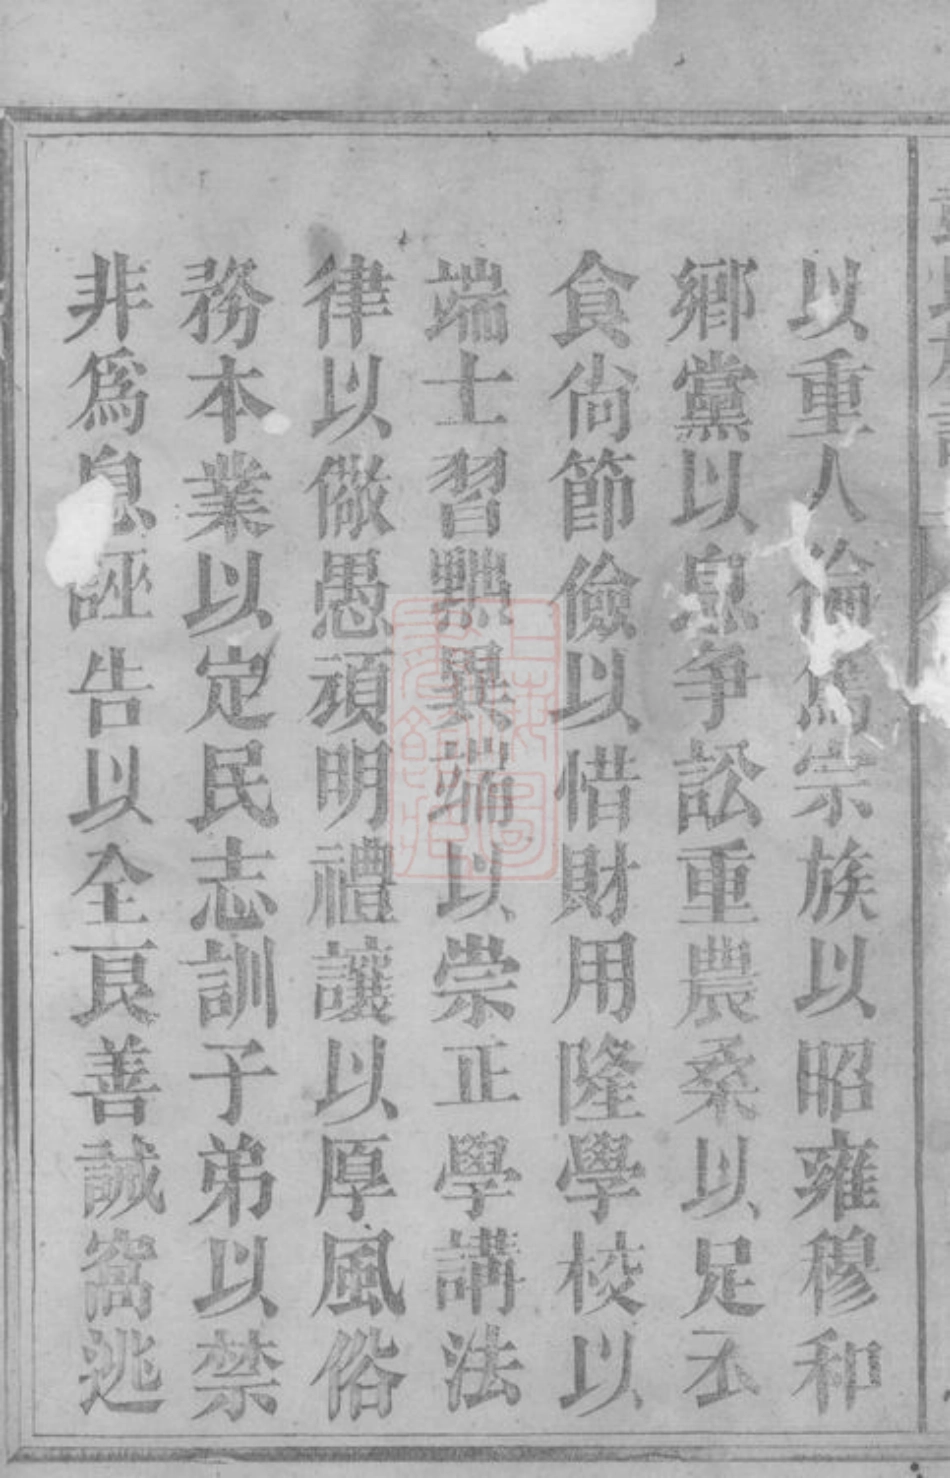 以重人倫篤宗族以昭雍穆和
鄉黨以息争訟重農桑以足衣
食尚節儉以惜財用隆學校以
端士習黜異端以崇正學講法
律以儆愚頑明禮讓以厚風俗
務本業以定民志訓子弟以禁
非爲息誣告以全良善誡窩逃